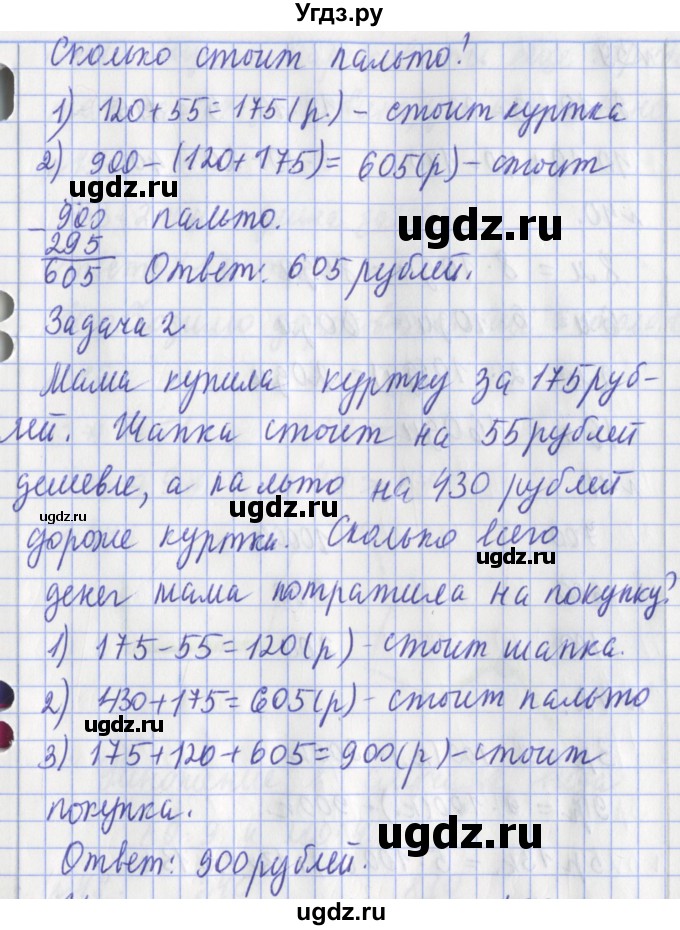 Угдз.ру
Сколько стоит пальто?
1) 120+55=175(р.) - стоит куртка
2) 900-(120+175)= 605(р) - стоит
ugdz.ru
ugdz.ru
-900 пальто.
295
605 Ответ: 605 рублей.
ugdz.ru
Задача 2
Мама купила куртку за 175 руб-
лей. Шапка стоит на 55 рублей
дешевле, а пальто на 430 рублей
ugdz.ru
ugdz.ru
дороже куртки. Сколько всего
денег мама потратила на покупку?
1) 175-55=120(р) - стоит шапка.
2) 430+175=605(р) - стоит пальто
ugdz.ru
3) 175+120+605=900(р) - стоит
покупка.
ugdz.ru
Ответ: 900 рублей.
ugdz.ru